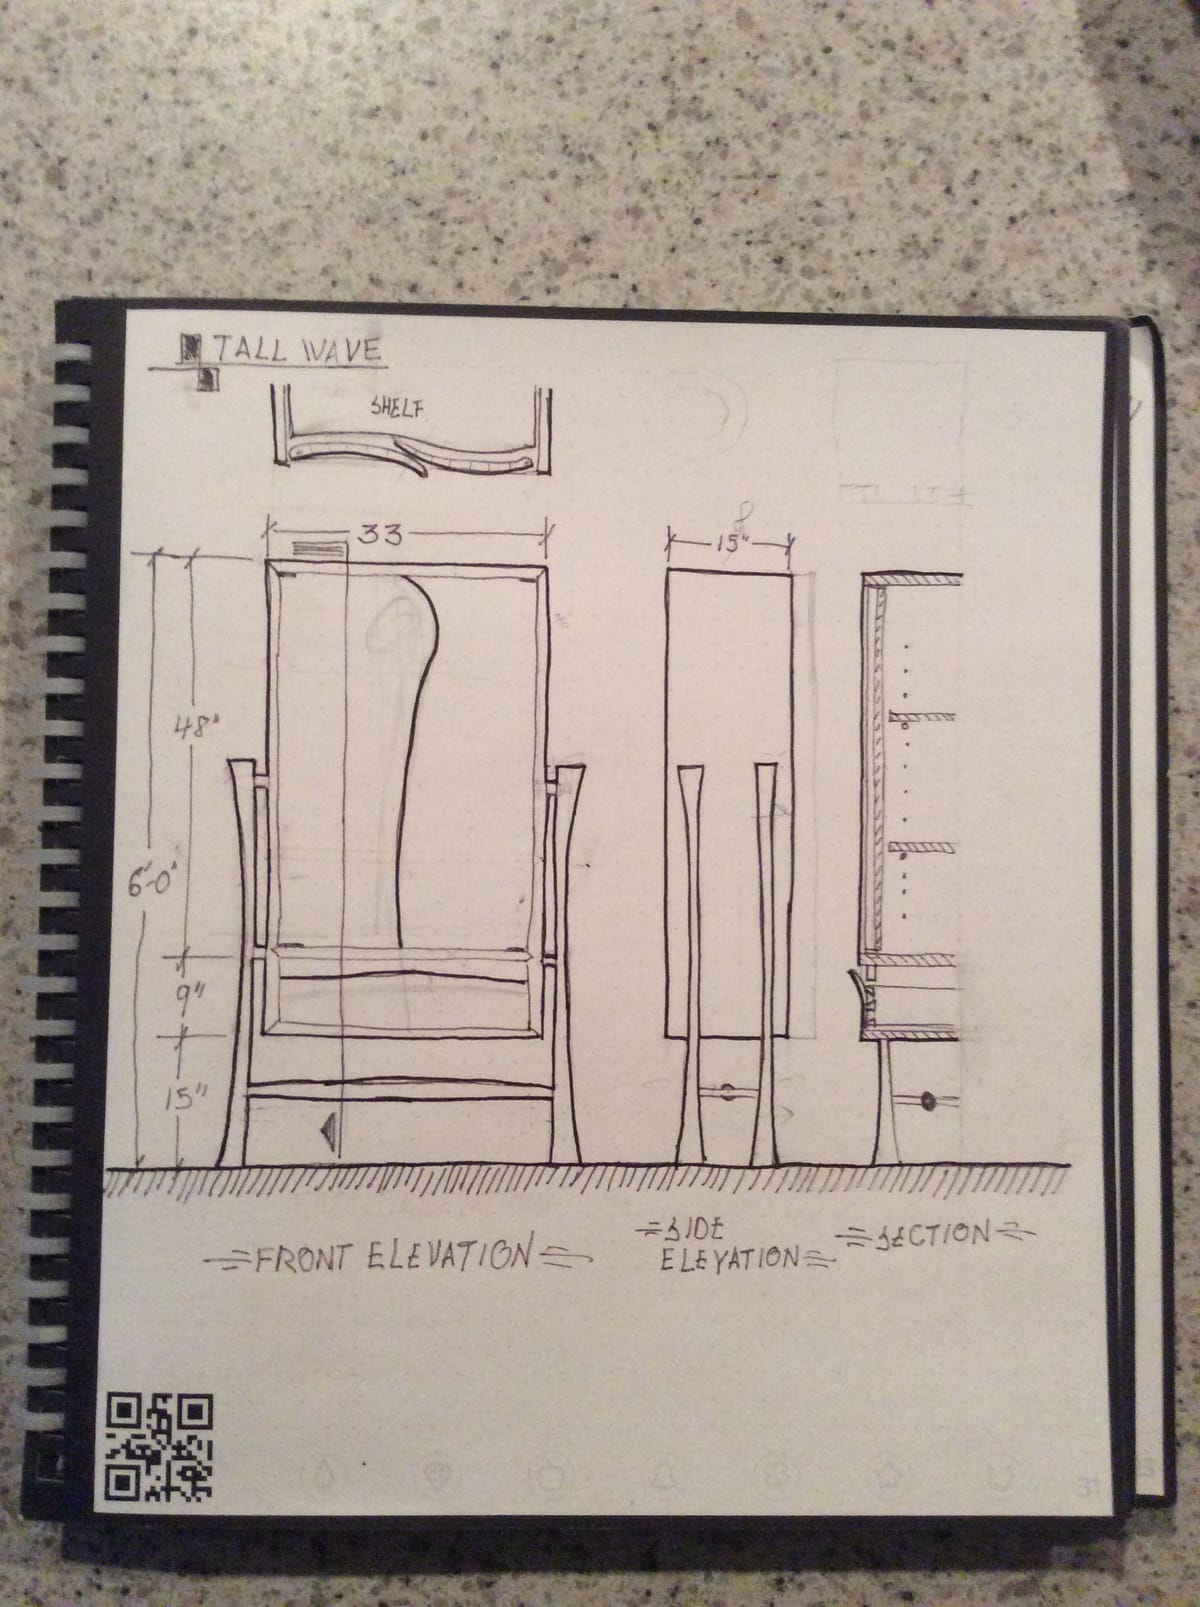 TALL WAVE
SHELF
33
15"
48"
6'-0"
9"
15"
FRONT ELEVATION
SIDE
ELEVATION
SECTION